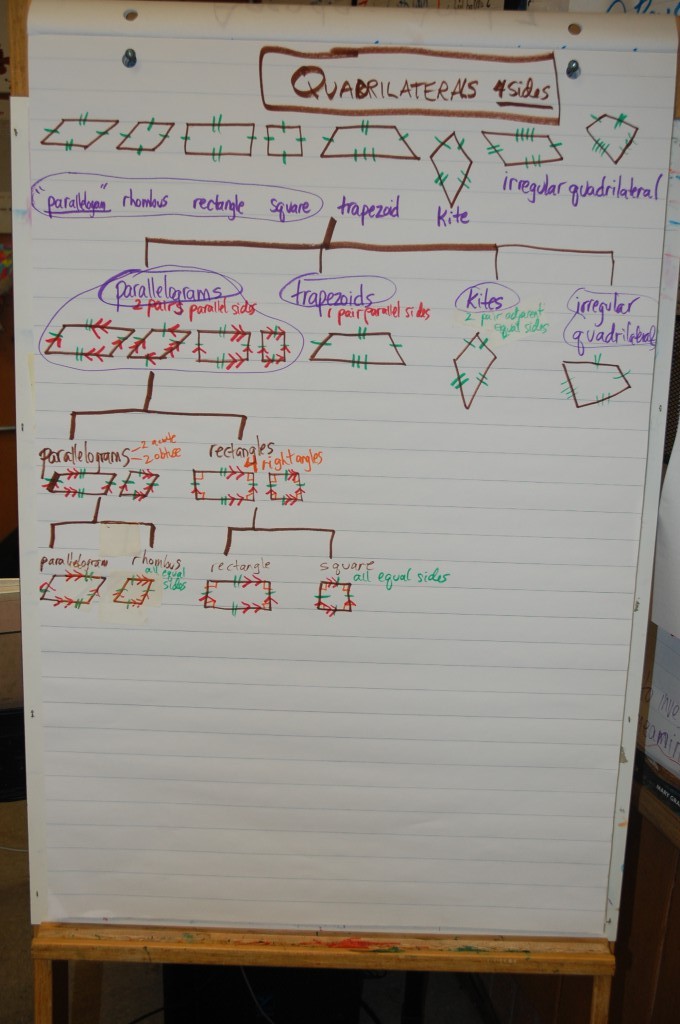 QUADRILATERALS 4 sides
"parallelogram" rhombus rectangle square trapezoid Kite irregular quadrilateral
parallelograms
2 pairs parallel sides
trapezoids
1 pair parallel sides
Kites
2 pair adjacent
equal sides
irregular
quadrilaterals
parallelograms
2 acute
2 obtuse
rectangles
4 right angles
parallelogram
rhombus
all equal
sides
rectangle
square
all equal sides
MARY